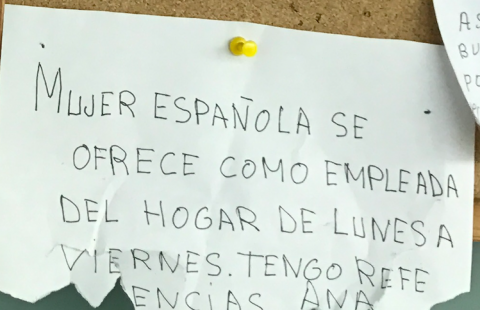 MUJER ESPAÑOLA SE
OFRECE COMO EMPLEADA
DEL HOGAR DE LUNES A
VIERNES. TENGO REFE
ENCIAS ANA
AS
BU
PO